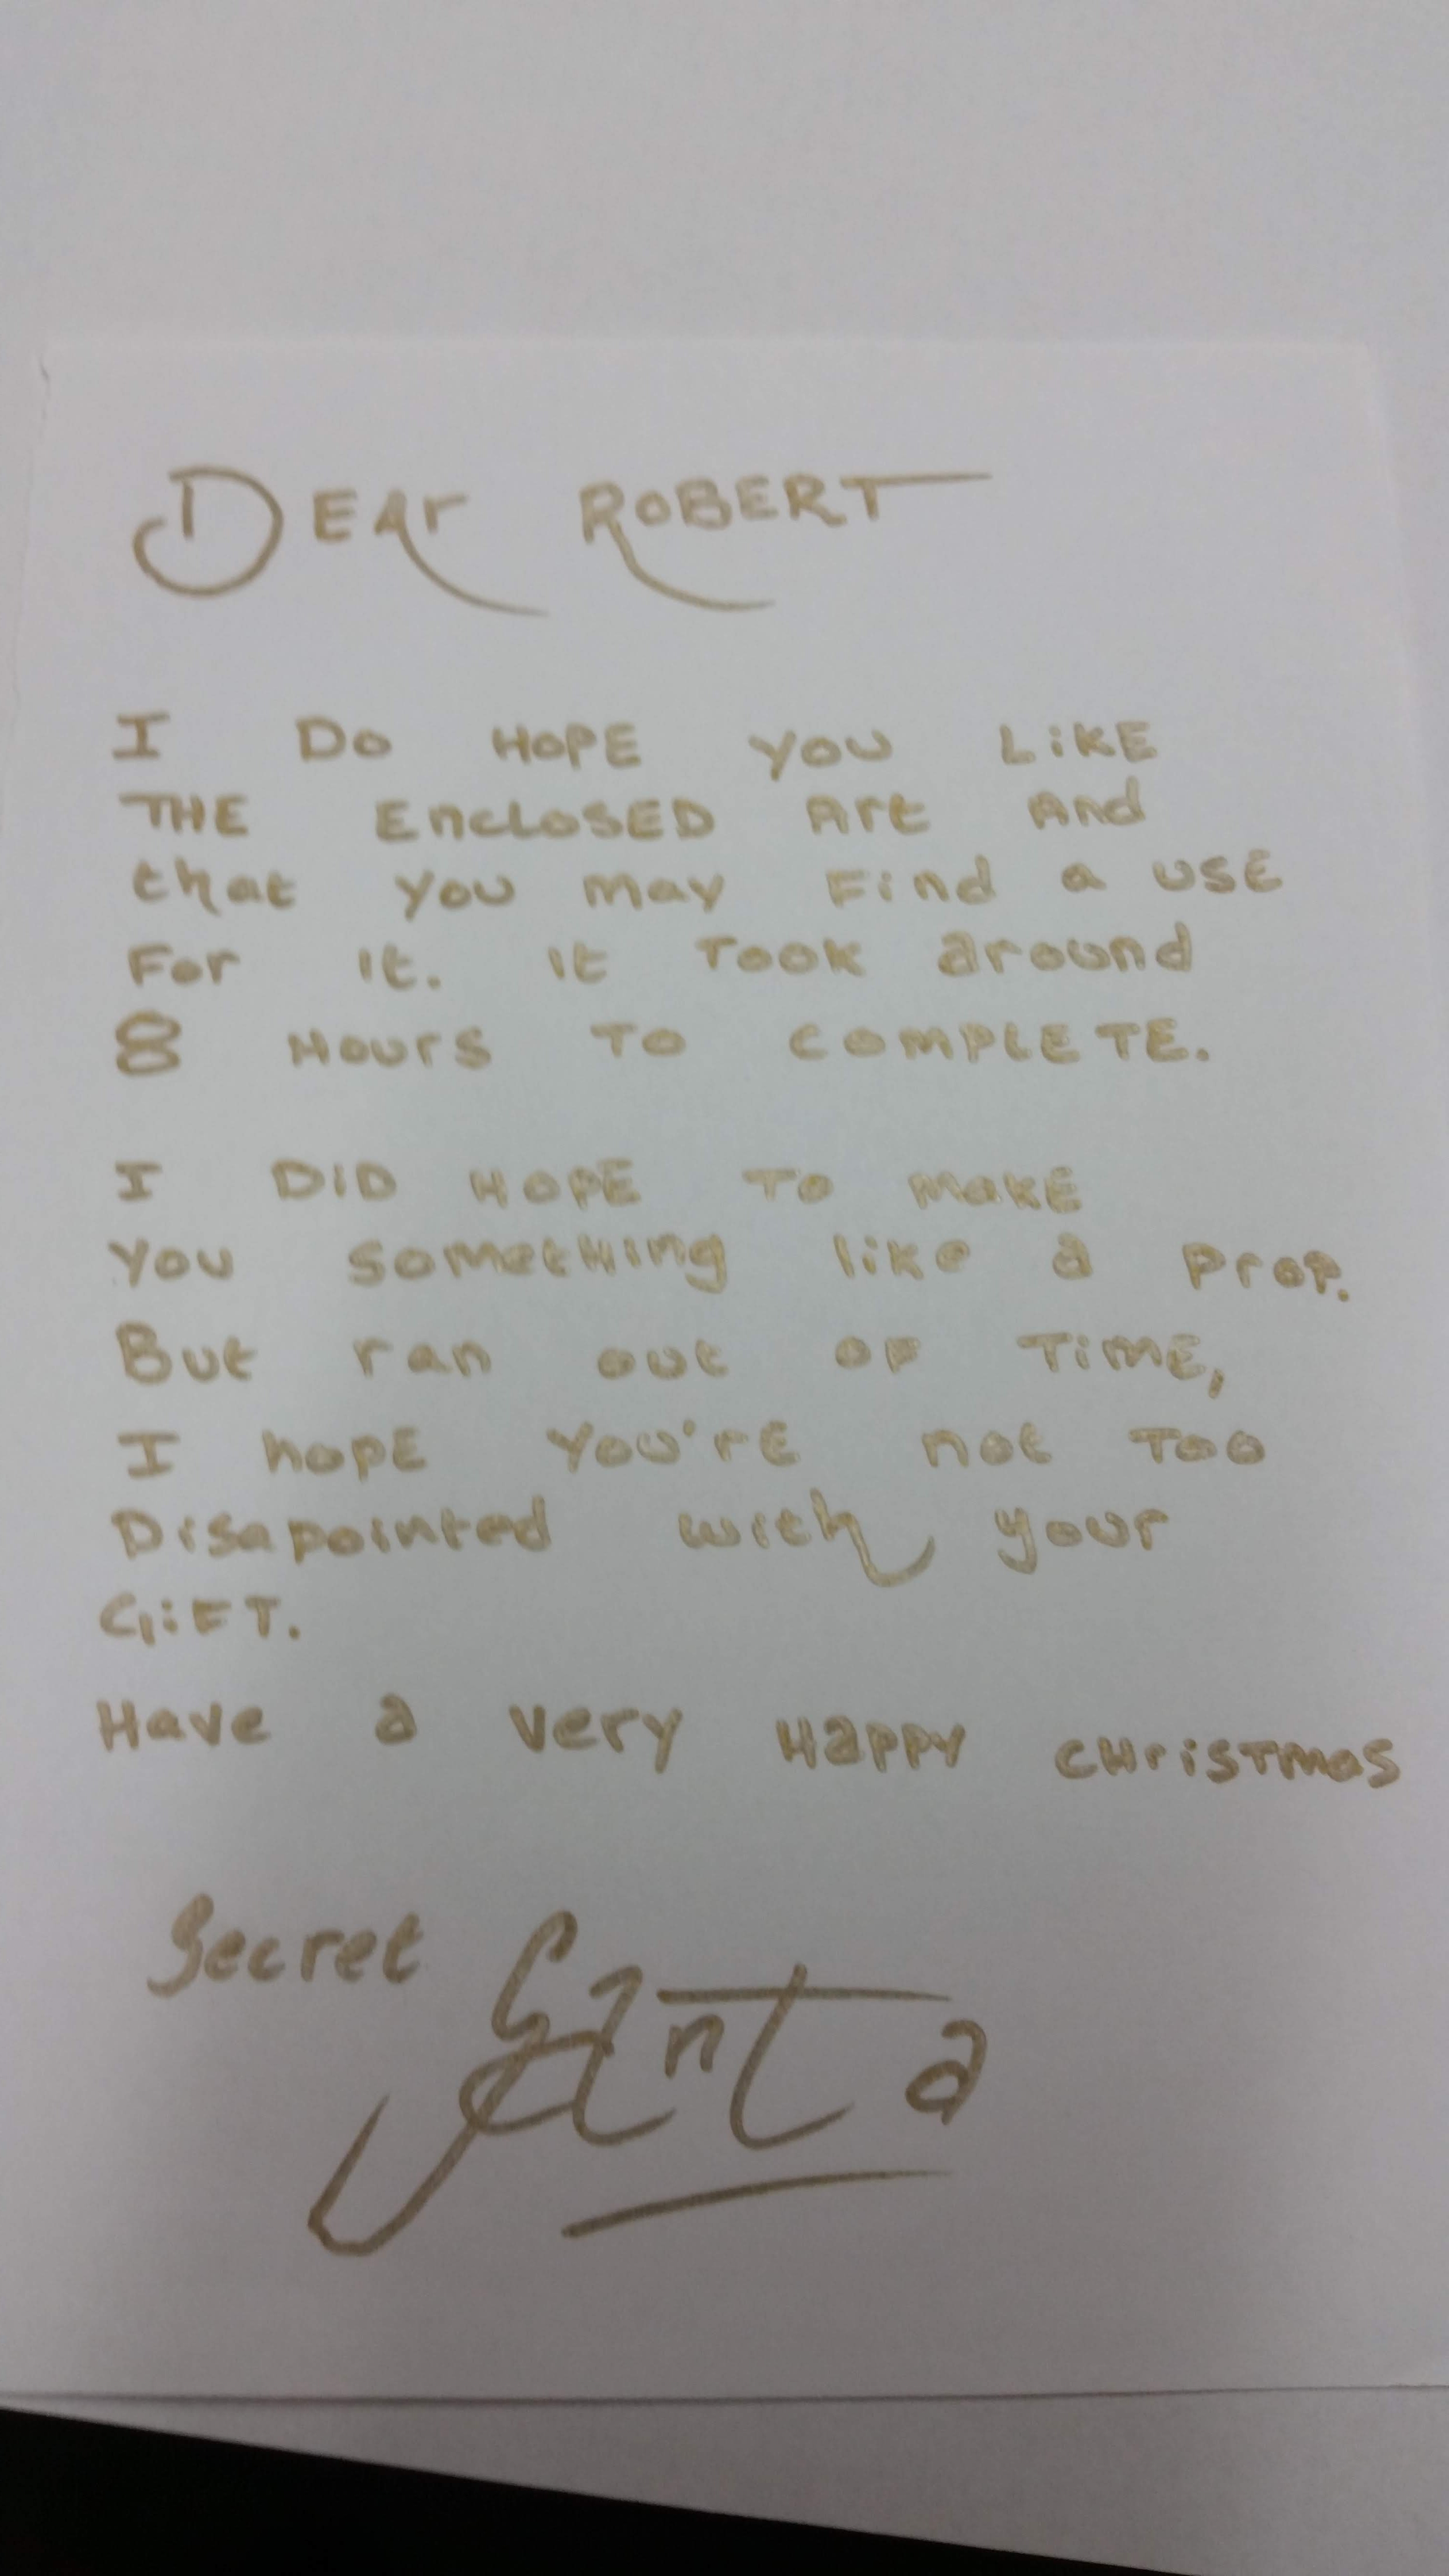 DEAr ROBERT
I DO HOPE YOU LiKE
THE EnclOSED Art And
that you may Find a USE
For it. it TOOK around
8 Hours TO COMPLETE.
I DiD HOPE TO makE
you something like a prop.
But ran out OF TiME,
I hopE you'rE not TOO
Disapointed with your
GiFT.
Have a very Happy CHrisTmas
Secret Santa